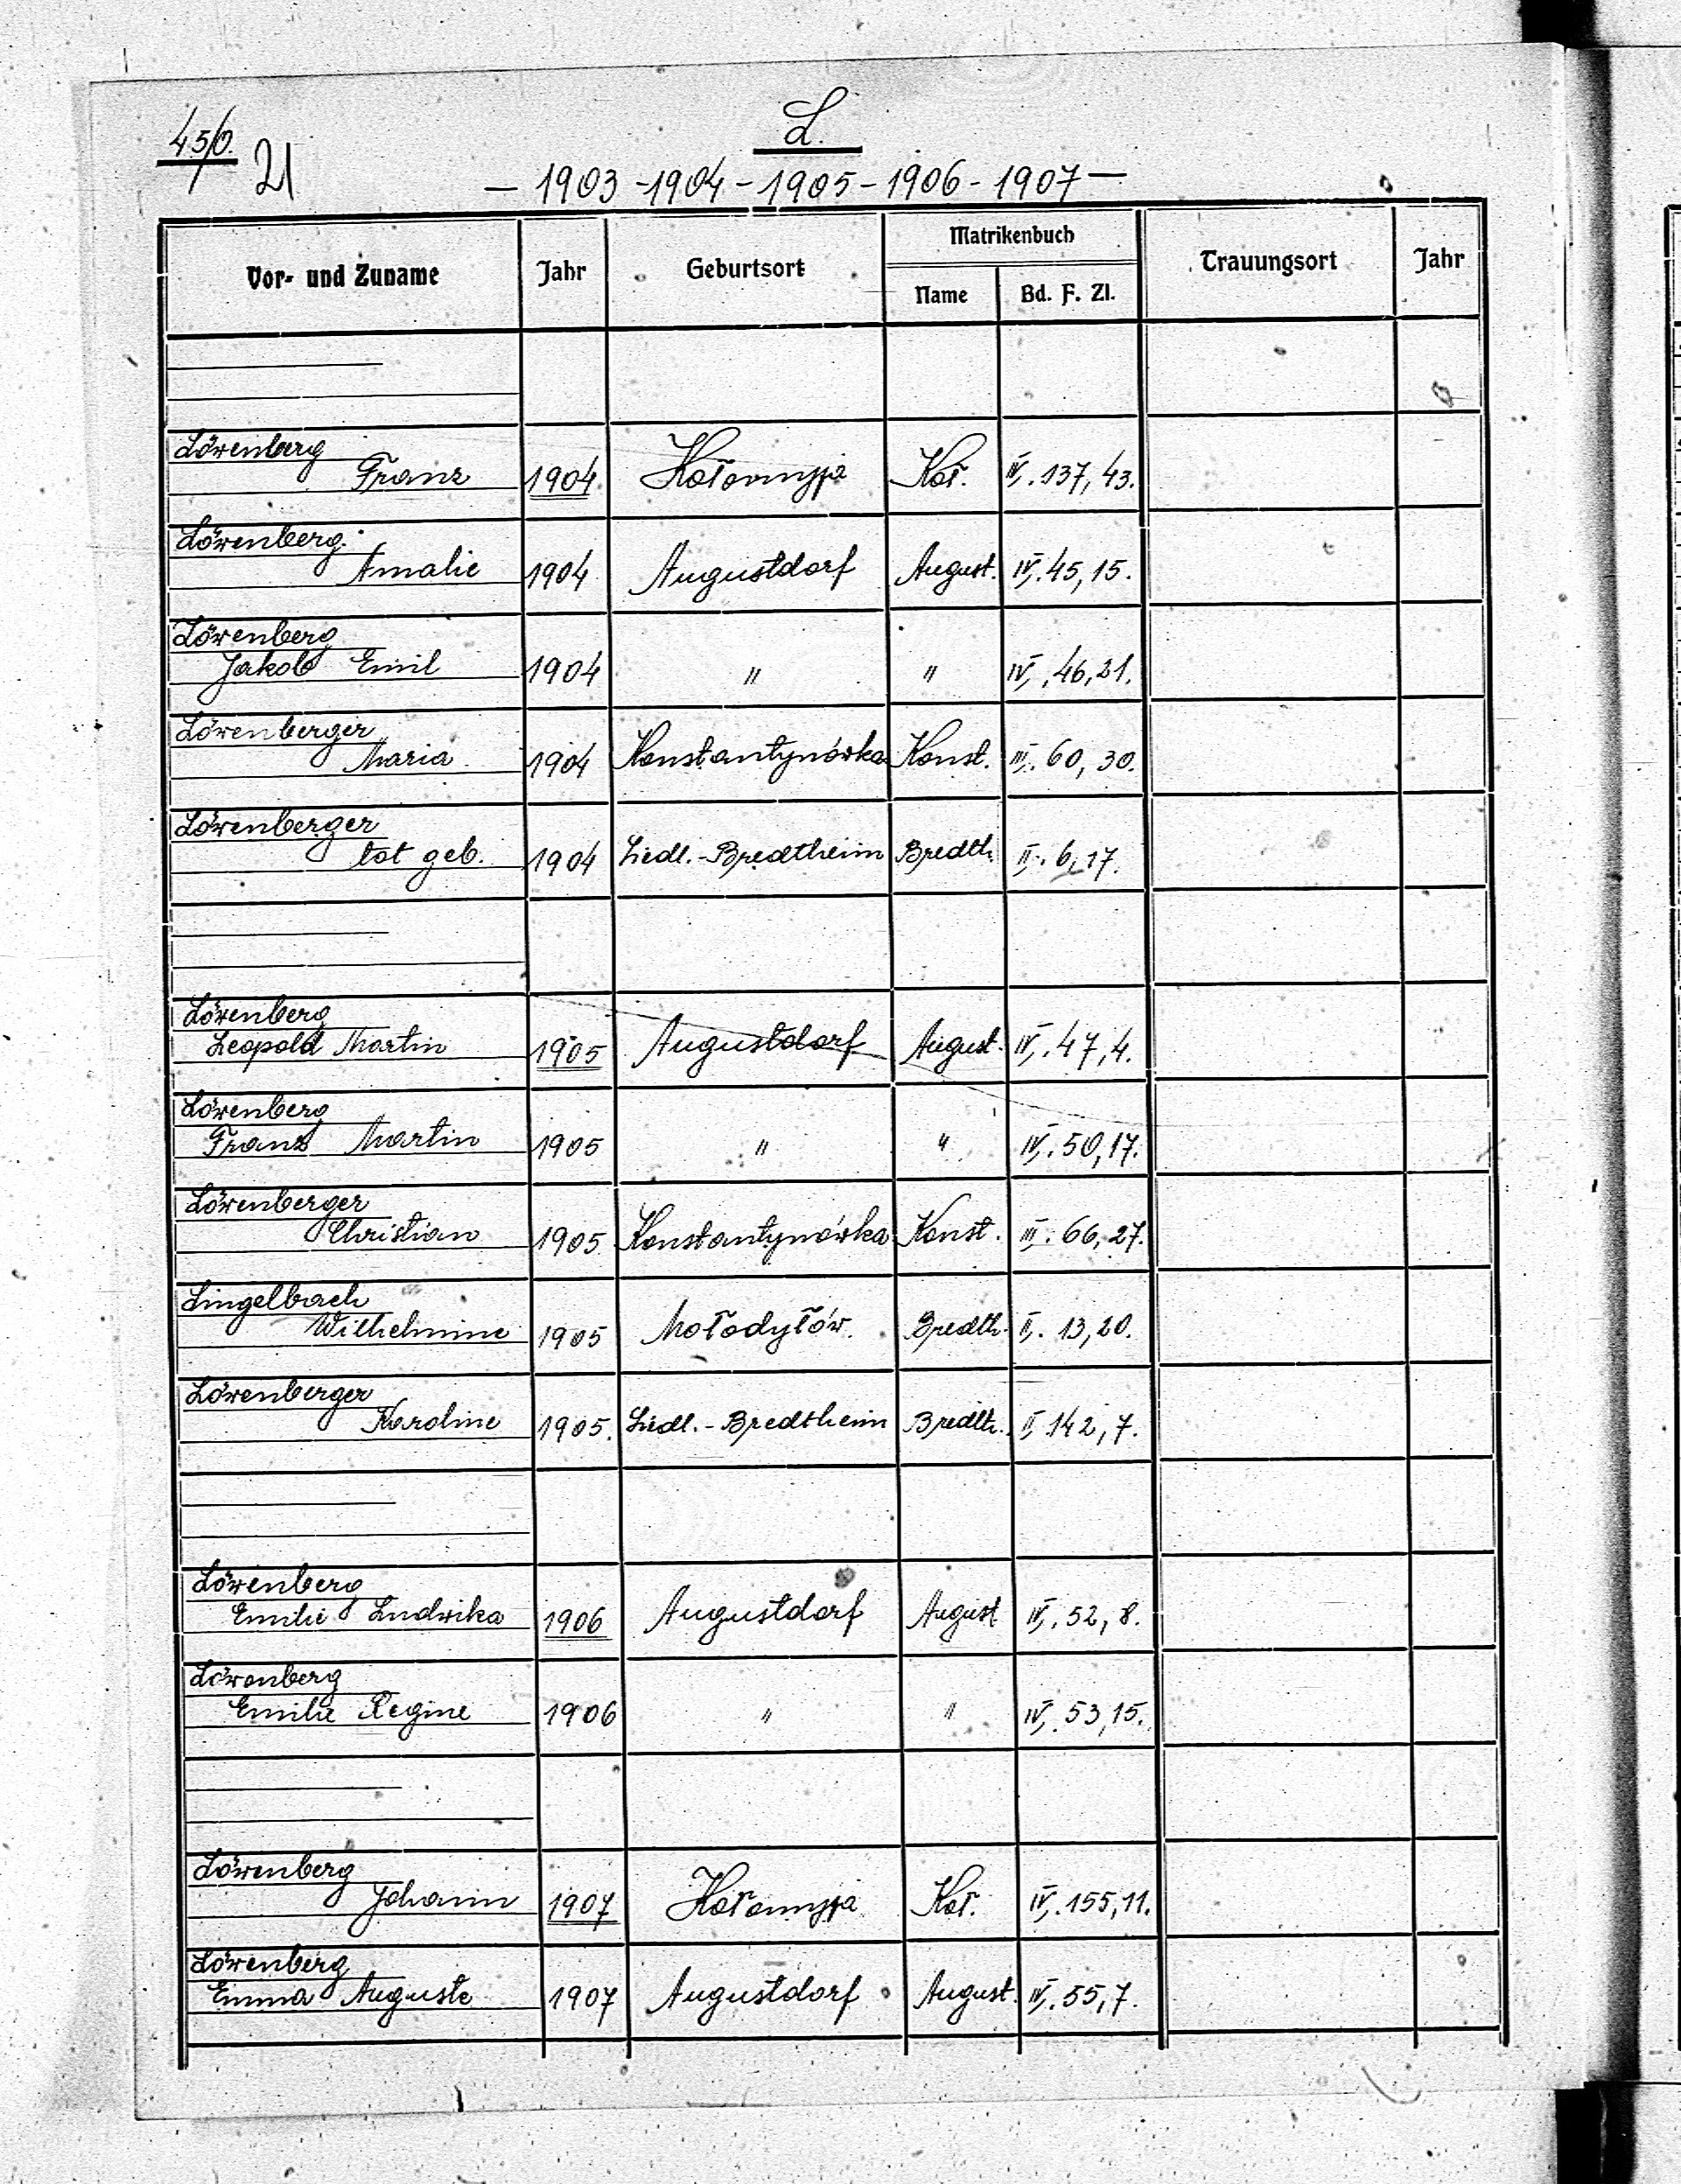 456.
21
L.
— 1903 - 1904 - 1905 - 1906 - 1907 —
Vor- und Zuname Jahr Geburtsort Matrikenbuch Trauungsort Jahr
Name Bd. F. Zl.
Löwenberg
Franz 1904 Kołomyja Koł. IV. 137, 43.
Löwenberg
Amalie 1904 Augustdorf August. IV. 45, 15.
Löwenberg
Jakob Emil 1904 " " IV. 46, 21.
Löwenberger
Maria 1904 Konstantynówka Konst. III. 60, 30.
Löwenberger
tot geb. 1904 Siedl.-Bredtheim Bredth. II. 6, 17.
Löwenberg
Leopold Martin 1905 Augustdorf August. IV. 47, 4.
Löwenberg
Franz Martin 1905 " " IV. 50, 17.
Löwenberger
Christian 1905 Konstantynówka Konst. III. 66, 27.
Lingelbach
Wilhelmine 1905 Mołodyłów. Bredth. II. 13, 20.
Löwenberger
Karoline 1905. Siedl.-Bredtheim Bredth. II. 142, 7.
Löwenberg
Emilie Ludwika 1906 Augustdorf August IV. 52, 8.
Löwenberg
Emilie Regine 1906 " " IV. 53, 15.
Löwenberg
Johann 1907 Kołomyja Koł. IV. 155, 11.
Löwenberg
Emma Auguste 1907 Augustdorf August. IV. 55, 7.